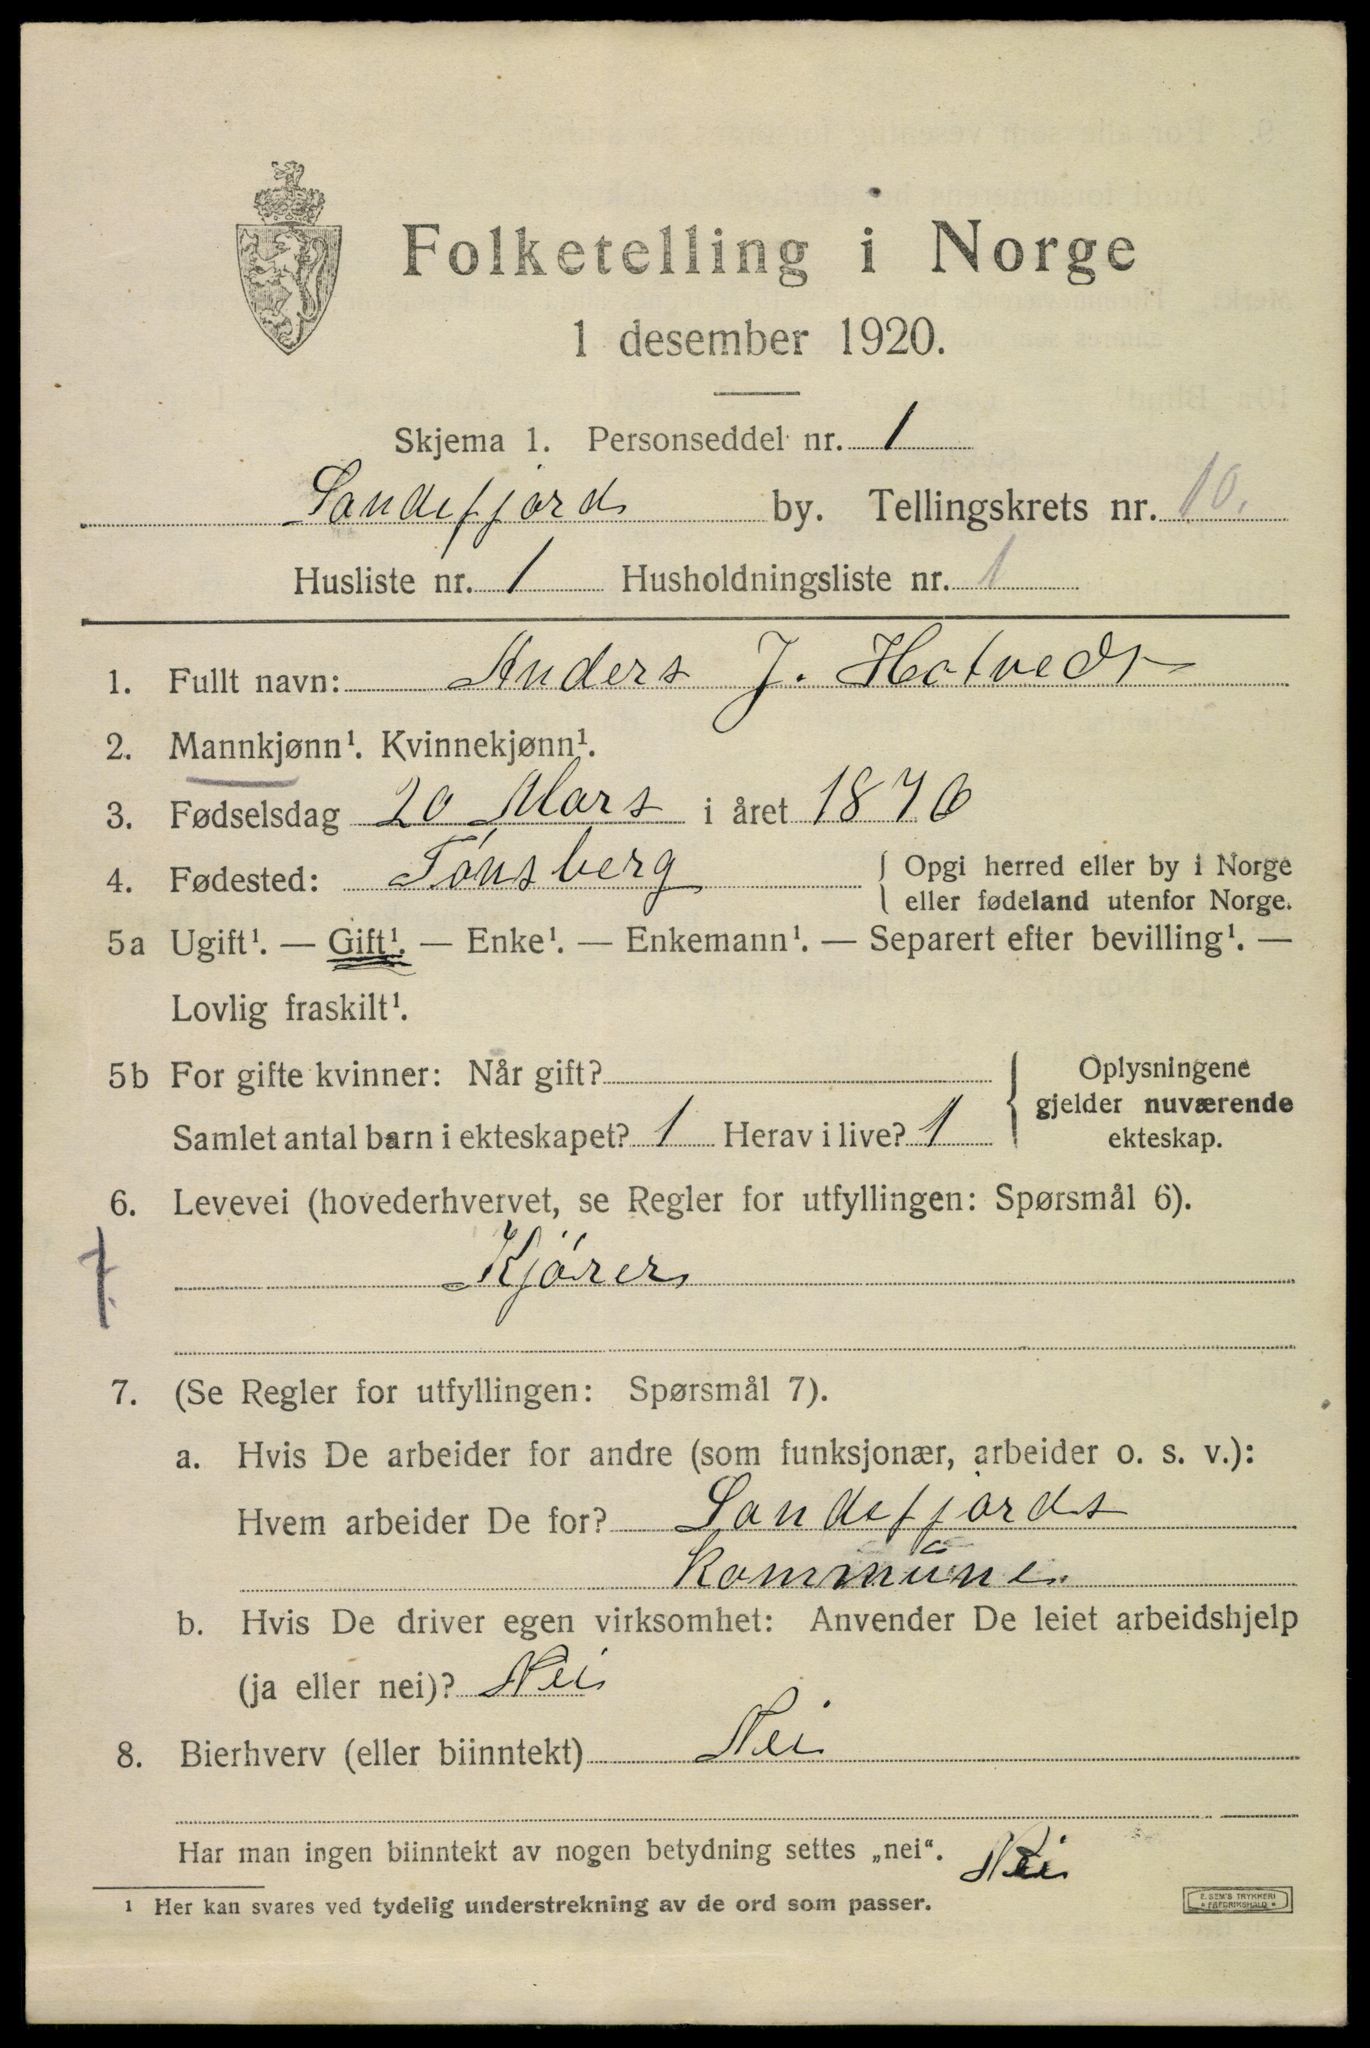 Folketelling i Norge
1 desember 1920.
Skjema 1. Personseddel nr. 1
Sandefjord by. Tellingskrets nr. 10.
Husliste nr. 1 Husholdningsliste nr. 1
1. Fullt navn: Anders J. Hotvedt
2. Mannkjønn¹. Kvinnekjønn¹.
3. Fødselsdag 20 Mars i året 1876
4. Fødested: Tønsberg { Opgi herred eller by i Norge
eller fødeland utenfor Norge.
5a Ugift¹. — Gift¹. — Enke¹. — Enkemann¹. — Separert efter bevilling¹. —
Lovlig fraskilt¹.
5b For gifte kvinner: Når gift? { Oplysningene
gjelder nuværende
Samlet antal barn i ekteskapet? 1 Herav i live? 1 ekteskap.
6. Levevei (hovederhvervet, se Regler for utfyllingen: Spørsmål 6).
7. Kjører
7. (Se Regler for utfyllingen: Spørsmål 7).
a. Hvis De arbeider for andre (som funksjonær, arbeider o. s. v.):
Hvem arbeider De for? Sandefjords
kommune
b. Hvis De driver egen virksomhet: Anvender De leiet arbeidshjelp
(ja eller nei)? Nei
8. Bierhverv (eller biinntekt) Nei
Har man ingen biinntekt av nogen betydning settes „nei“. Nei
¹ Her kan svares ved tydelig understrekning av de ord som passer.
E. SEM'S TRYKKERI
* FREDRIKSHALD *